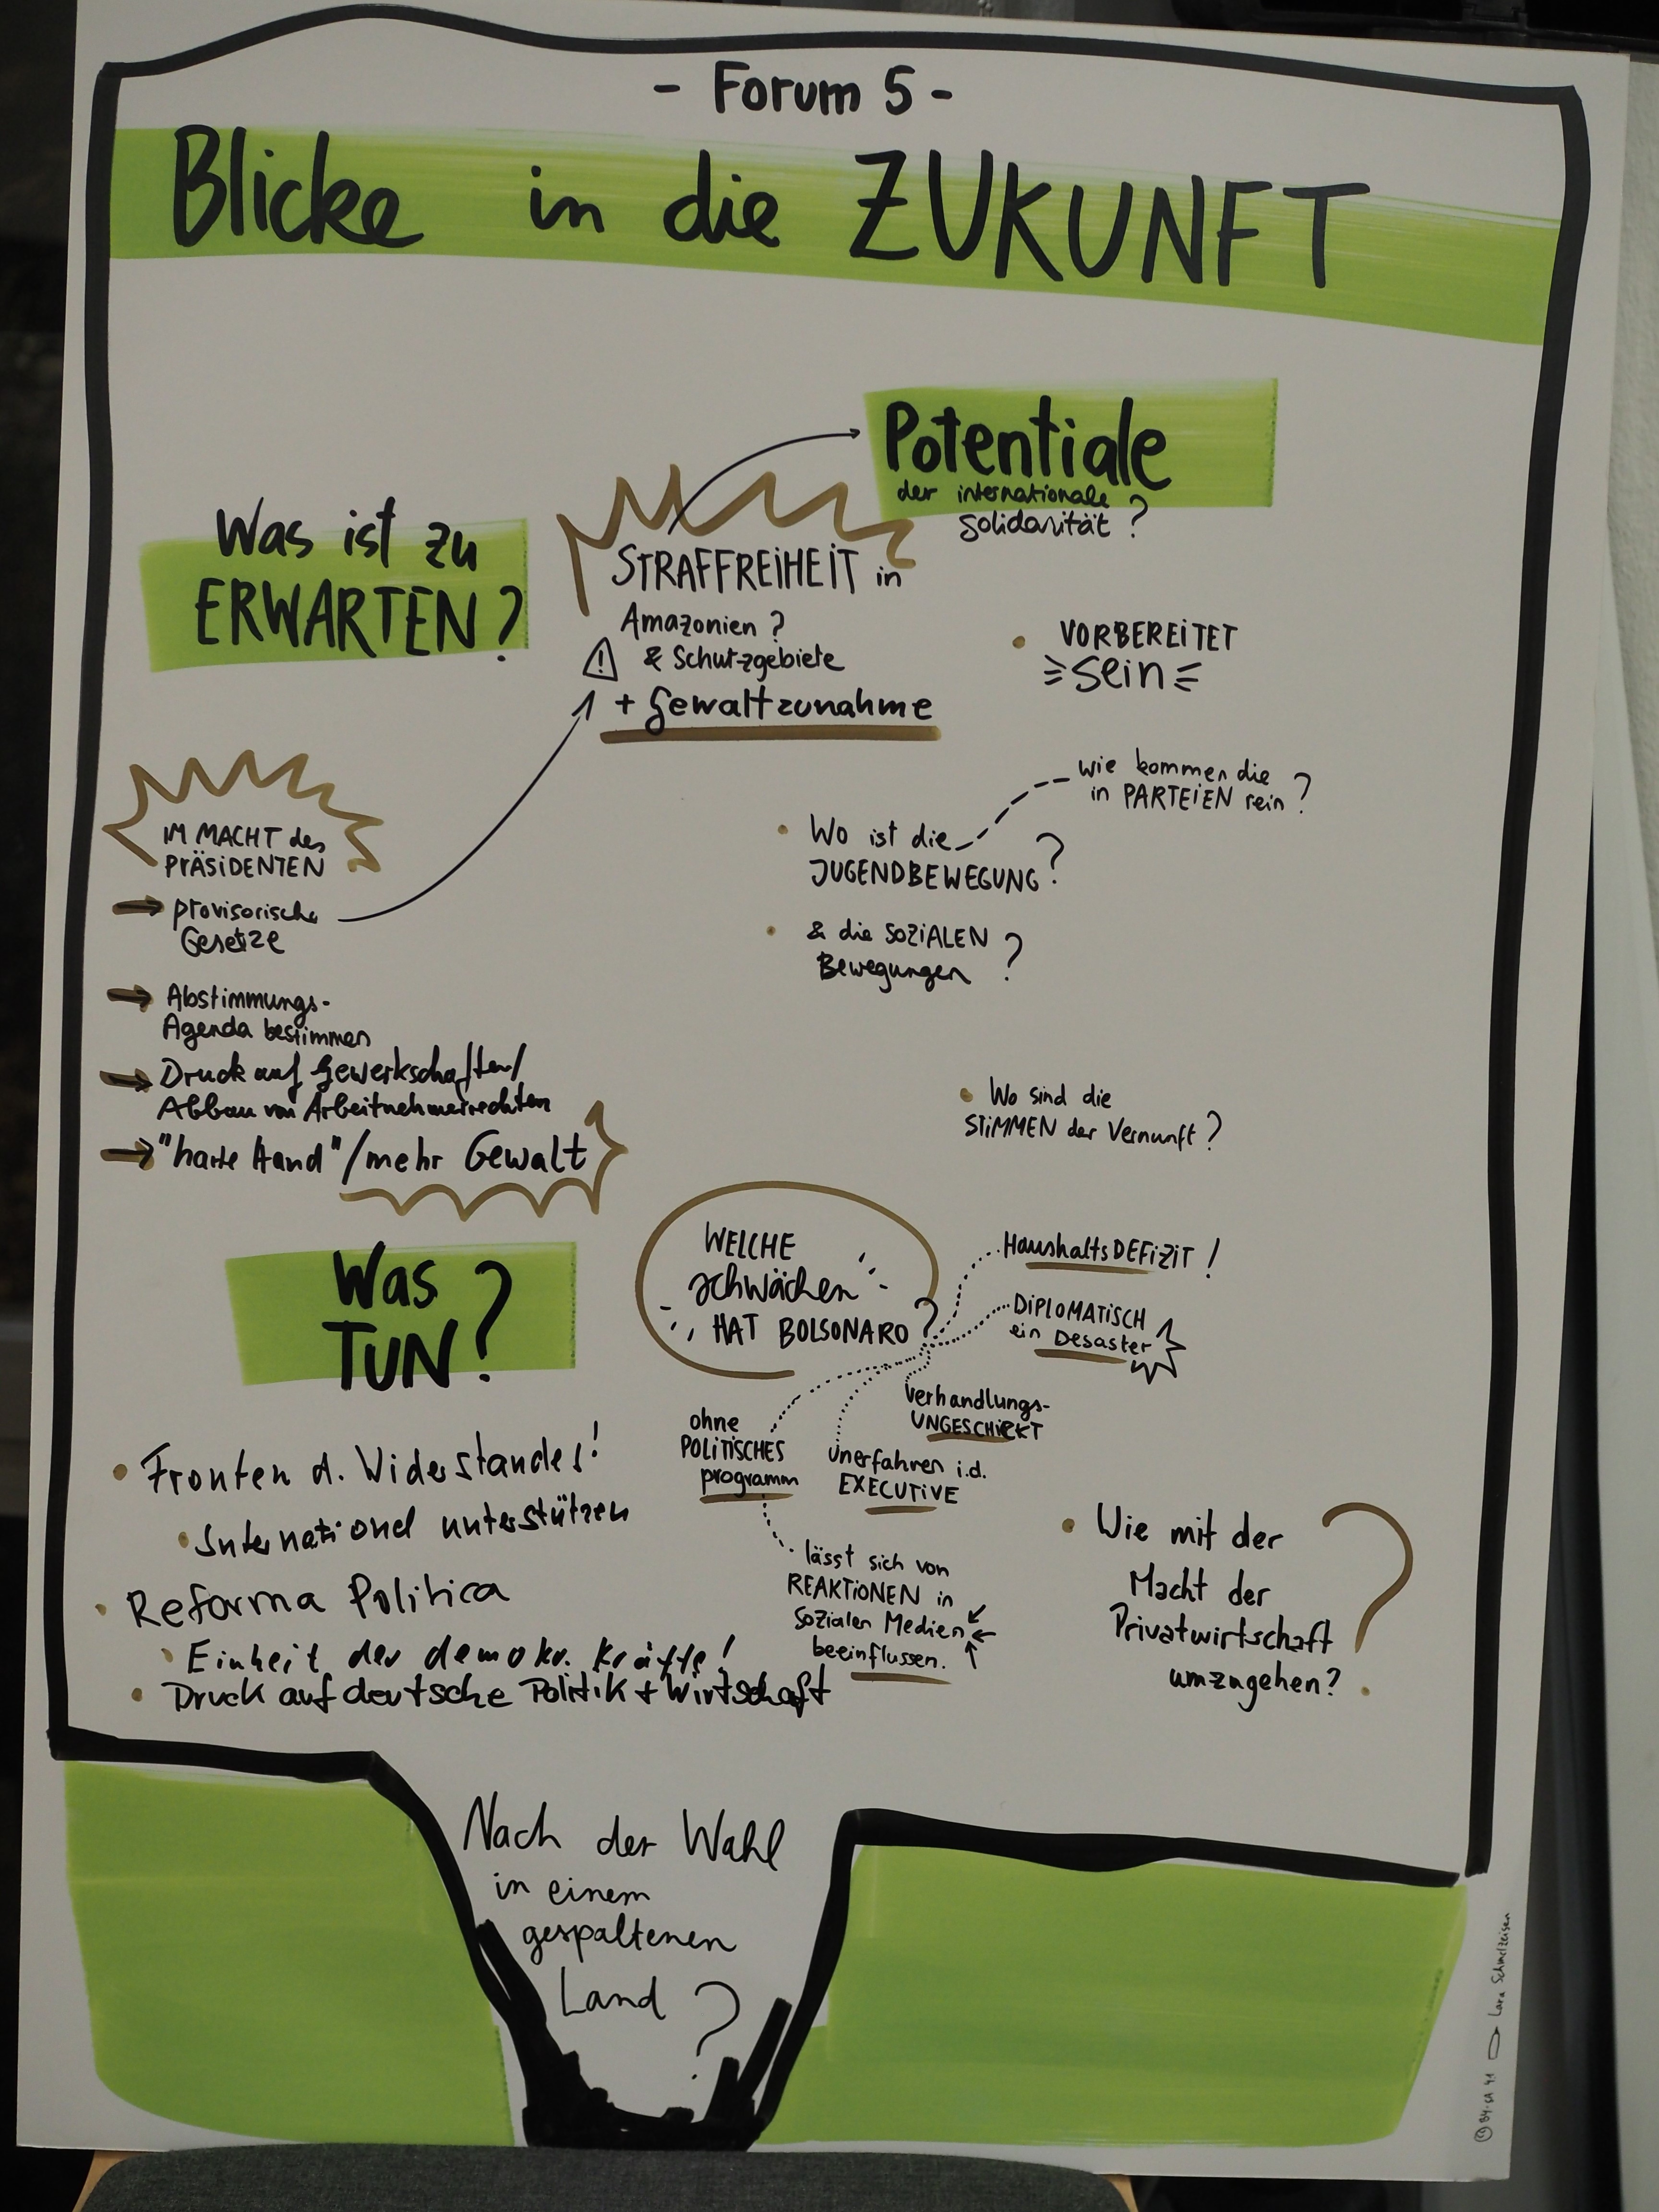 - Forum 5 -
Blicke in die ZUKUNFT
Potentiale
der internationale
Solidarität?
Was ist zu
ERWARTEN?
STRAFFREIHEIT in
Amazonien?
& Schutzgebiete
+ Gewaltzunahme
IM MACHT des
PRÄSIDENTEN
provisorische
Gesetze
Abstimmungs-
Agenda bestimmen
Druck auf Gewerkschaften/
Abbau von Arbeitnehmerrechten
"harte Hand"/mehr Gewalt
VORBEREITET
sein
Wo ist die
JUGENDBEWEGUNG?
wie kommen die
in PARTEIEN rein?
& die SOZIALEN
Bewegungen?
Wo sind die
STIMMEN der Vernunft?
WELCHE
Schwächen
HAT BOLSONARO?
HaushaltsDEFIZIT!
DIPLOMATISCH
ein Desaster
Verhandlungs-
UNGESCHICKT
unerfahren i.d.
EXECUTIVE
ohne
POLITISCHES
programm
lässt sich von
REAKTIONEN in
Sozialen Medien
beeinflussen.
Was
TUN?
Fronten d. Widerstandes!
International unterstützen
Reforma Politica
Einheit der demokr. Kräfte!
Druck auf deutsche Politik + Wirtschaft
Wie mit der
Macht der
Privatwirtschaft
umzugehen?
Nach der Wahl
in einem
gespaltenen
Land?
Lara Schmelzeisen